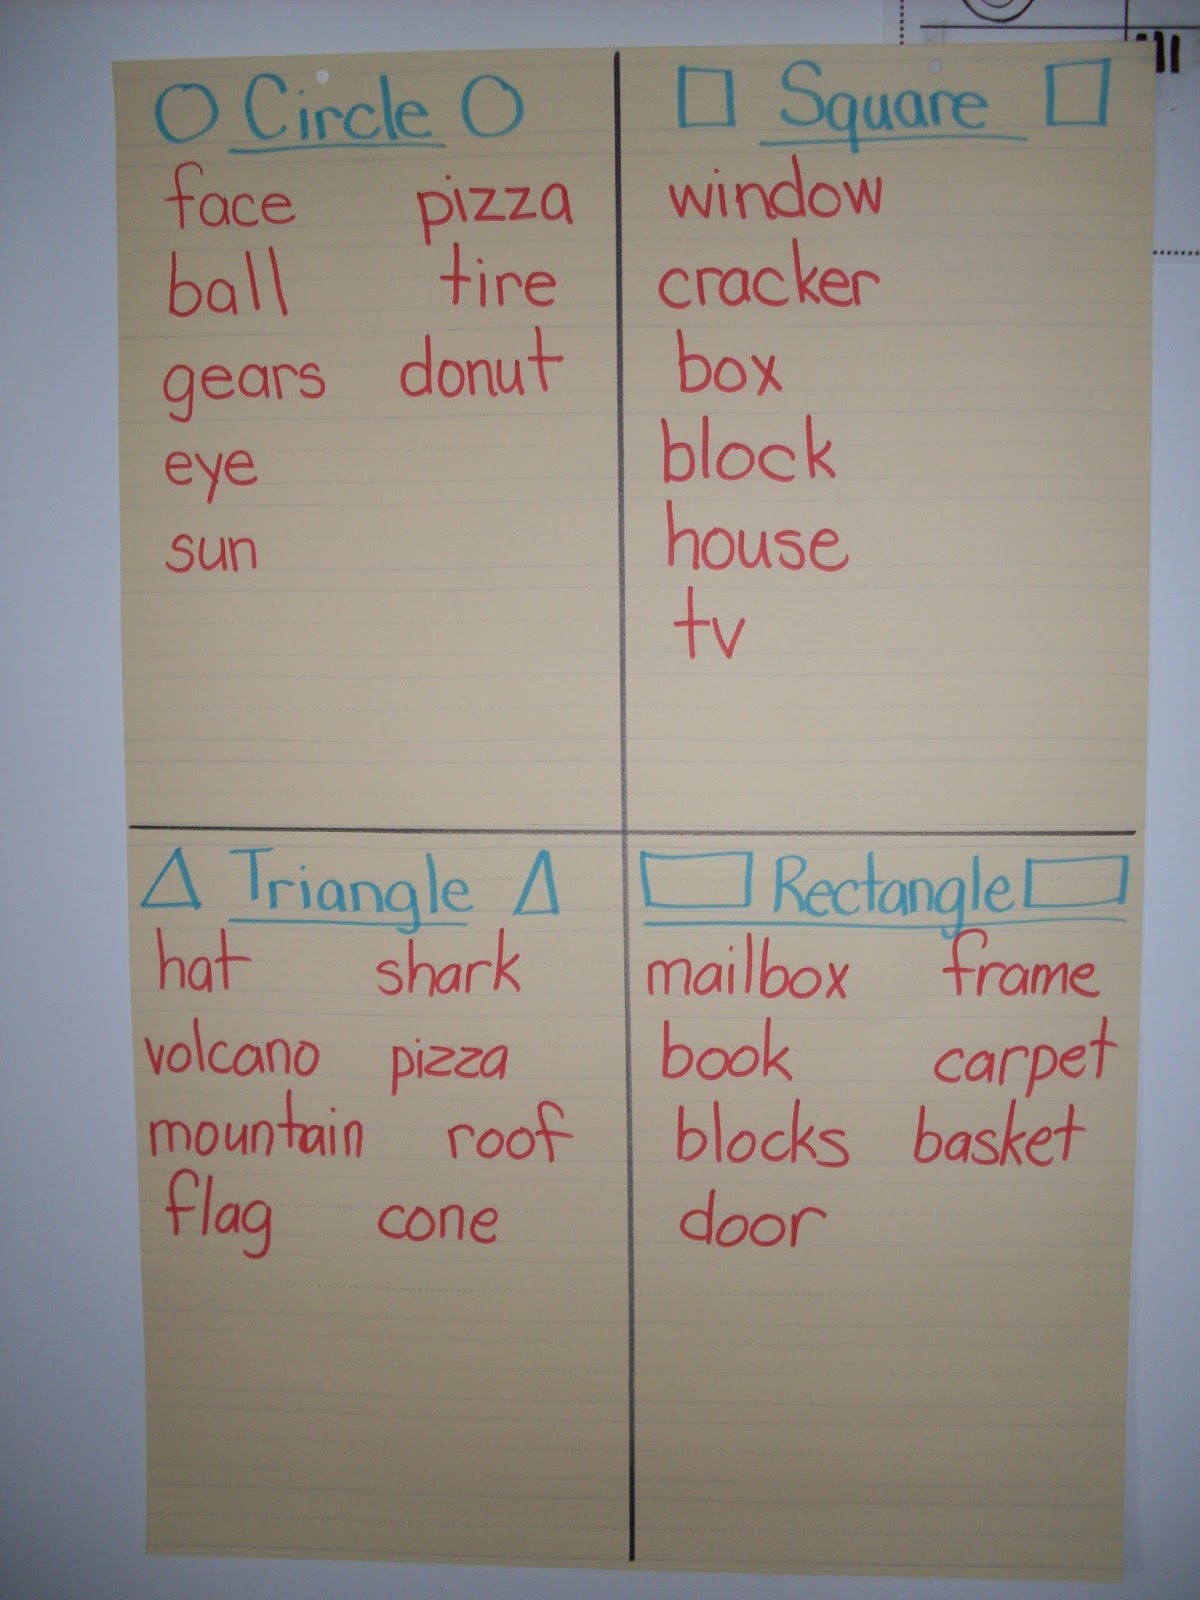 Circle
face pizza
ball tire
gears donut
eye
sun
Square
window
cracker
box
block
house
tv
Triangle
hat shark
volcano pizza
mountain roof
flag cone
Rectangle
mailbox frame
book carpet
blocks basket
door